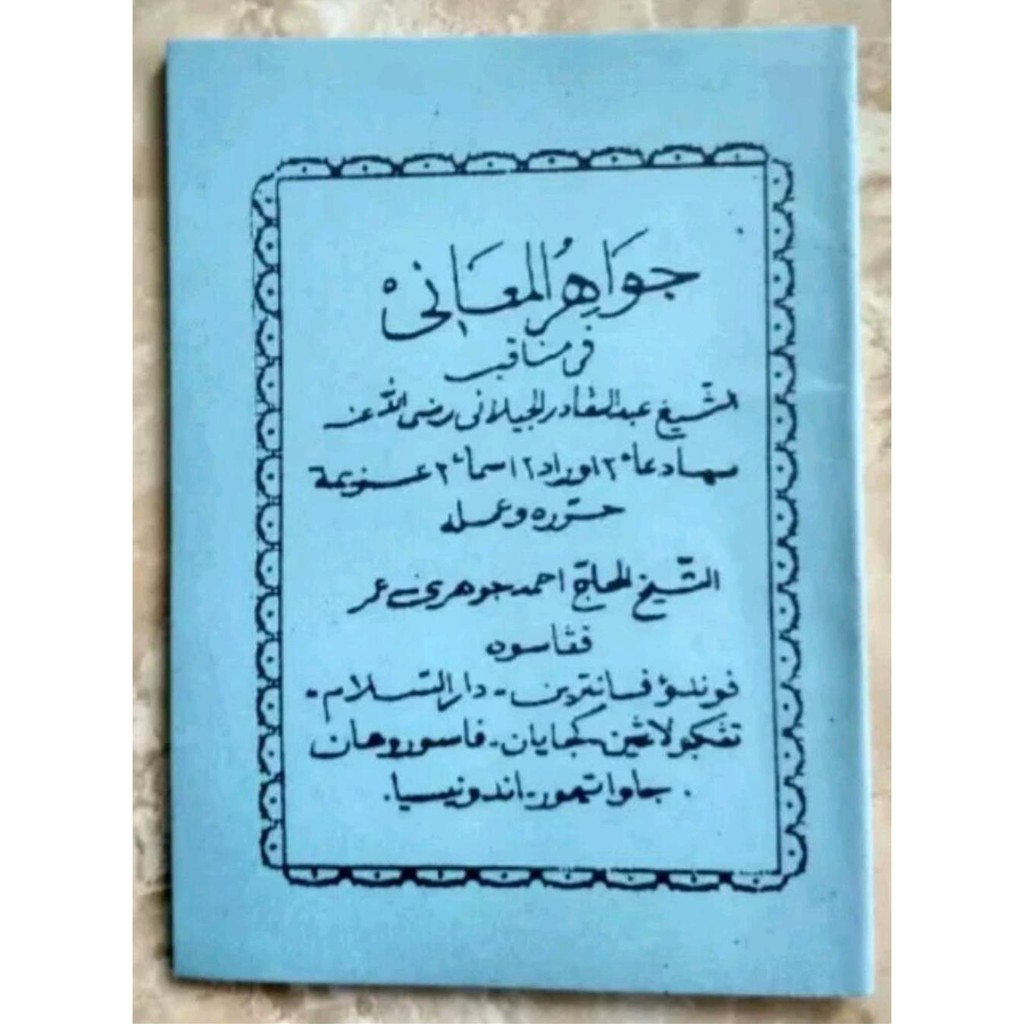 جَوَاهِرُ الْمَعَانِيْ
في مناقب
الشّيخ عبد القادر الجيلاني رضى الله عنه
دعاء٢ اوراد٢ اسماء٢ عزيمة
حرّره وعمله
الشّيخ الحاجّ احمد جوهري عمر
فڠاسوه
فوندوق فسانترين - دار السّلام -
تڠكولاڠين كجايان - فاسوروهان
. جاوا تيمور - اندونيسيا .